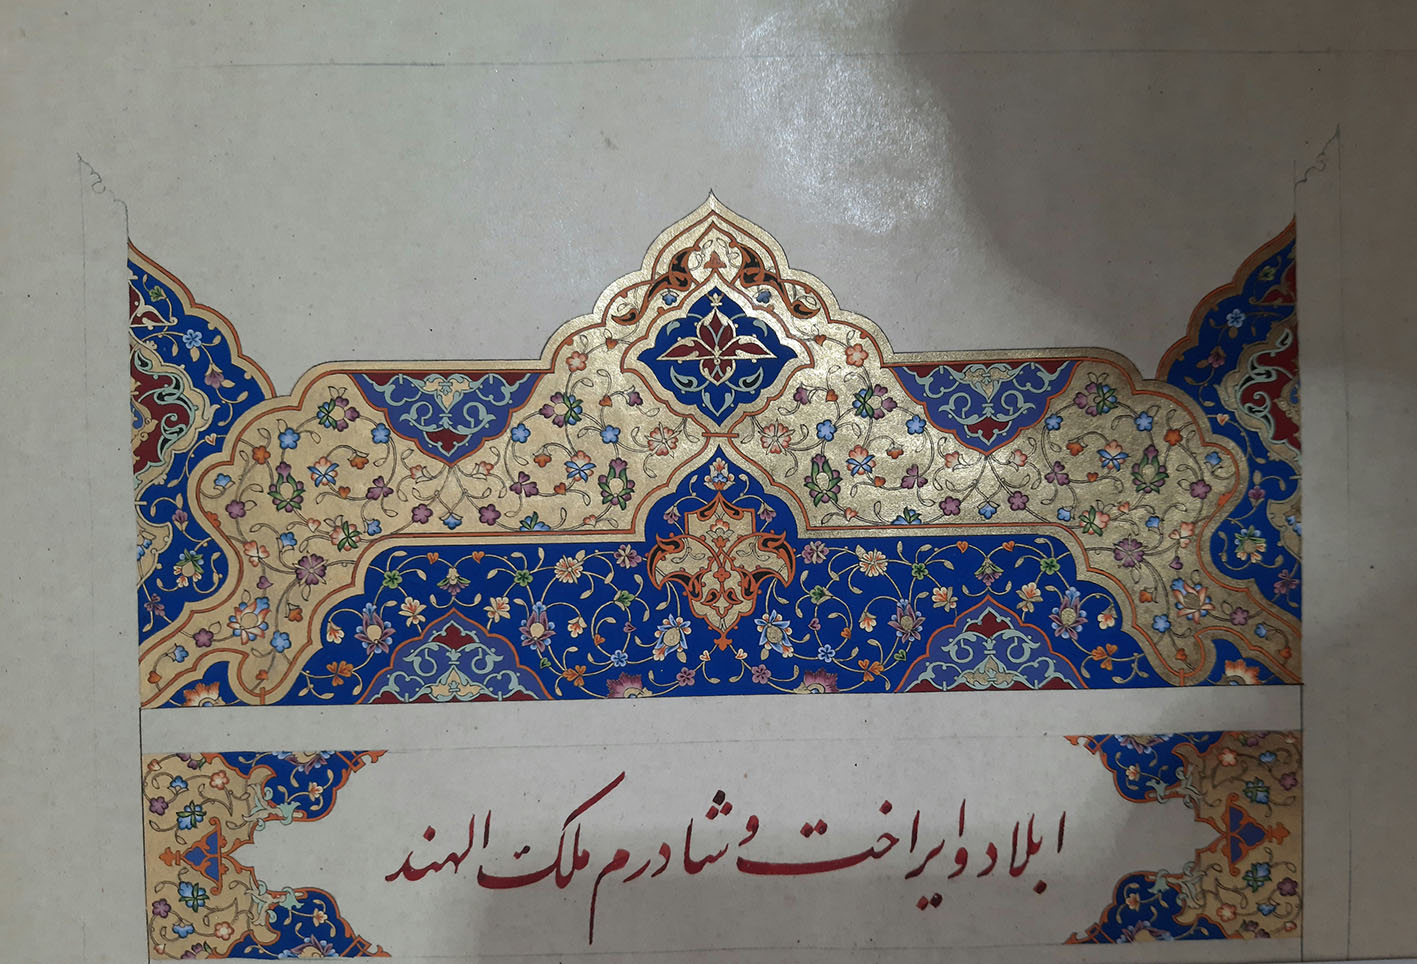 ابلاد و ایراخت و شادرم ملک الهند